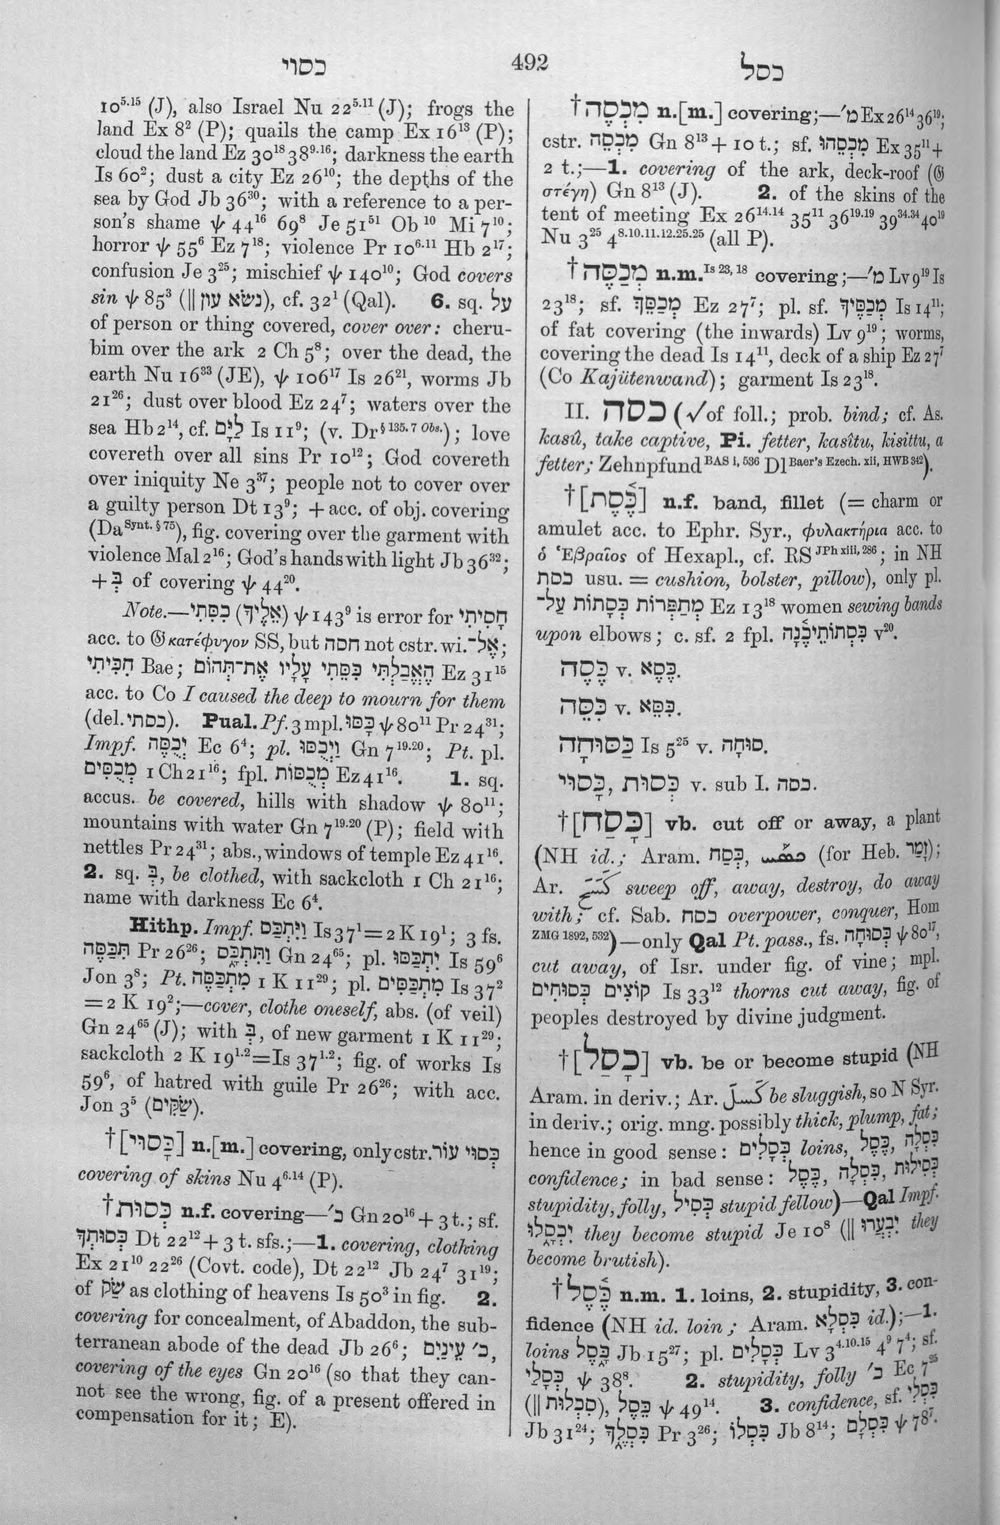 כסוי
492
כסל
10⁵·¹⁵ (J), also Israel Nu 22⁵·¹¹ (J); frogs the
land Ex 8² (P); quails the camp Ex 16¹³ (P);
cloud the land Ez 30¹⁸ 38⁹·¹⁶; darkness the earth
Is 60²; dust a city Ez 26¹⁰; the depths of the
sea by God Jb 36³⁰; with a reference to a per-
son's shame ψ 44¹⁶ 69⁸ Je 51⁵¹ Ob¹⁰ Mi 7¹⁰;
horror ψ 55⁶ Ez 7¹⁸; violence Pr 10⁶·¹¹ Hb 2¹⁷;
confusion Je 3²⁵; mischief ψ 140¹⁰; God covers
sin ψ 85³ (‖ נשׂא עון), cf. 32¹ (Qal). 6. sq. על
of person or thing covered, cover over: cheru-
bim over the ark 2 Ch 5⁸; over the dead, the
earth Nu 16³³ (JE), ψ 106¹⁷ Is 26²¹, worms Jb
21²⁶; dust over blood Ez 24⁷; waters over the
sea Hb 2¹⁴, cf. לַיָּם Is 11⁹; (v. Dr§ 135. 7 Obs.); love
covereth over all sins Pr 10¹²; God covereth
over iniquity Ne 3³⁷; people not to cover over
a guilty person Dt 13⁹; + acc. of obj. covering
(Da Synt. § 75), fig. covering over the garment with
violence Mal 2¹⁶; God's hands with light Jb 36³²;
+ בְּ of covering ψ 44²⁰.
Note.—כִּסִּתִי (אֵלֶיךָ) ψ 143⁹ is error for חָסִיתִי
acc. to 𝔊 κατέφυγον SS, but חסה not cstr. wi. אֶל־;
חִכִּיתִי Bae; הֶאֱבַלְתִּי כִּסֵּתִי עָלָיו אֶת־תְּהוֹם Ez 31¹⁵
acc. to Co I caused the deep to mourn for them
(del. כסתי). Pual. Pf. 3 mpl. כָּסּוּ ψ 80¹¹ Pr 24³¹;
Impf. יְכֻסֶּה Ec 6⁴; pl. וַיְכֻסּוּ Gn 7¹⁹·²⁰; Pt. pl.
מְכֻסִּים 1 Ch 21¹⁶; fpl. מְכֻסּוֹת Ez 41¹⁶. 1. sq.
accus. be covered, hills with shadow ψ 80¹¹;
mountains with water Gn 7¹⁹·²⁰ (P); field with
nettles Pr 24³¹; abs., windows of temple Ez 41¹⁶.
2. sq. בְּ, be clothed, with sackcloth 1 Ch 21¹⁶;
name with darkness Ec 6⁴.
Hithp. Impf. וַיִּתְכַּס Is 37¹ = 2 K 19¹; 3 fs.
תִּכַּסֶּה Pr 26²⁶; וַתִּתְכָּס Gn 24⁶⁵; pl. יִתְכַּסּוּ Is 59⁶
Jon 3⁸; Pt. מִתְכַּסֶּה 1 K 11²⁹; pl. מִתְכַּסִּים Is 37²
= 2 K 19²;—cover, clothe oneself, abs. (of veil)
Gn 24⁶⁵ (J); with בְּ, of new garment 1 K 11²⁹;
sackcloth 2 K 19¹·² = Is 37¹·²; fig. of works Is
59⁶, of hatred with guile Pr 26²⁶; with acc.
Jon 3⁵ (שַׂקִּים).
†[כָּסוּי] n.[m.] covering, only cstr. כְּסוּי עוֹר
covering of skins Nu 4⁶·¹⁴ (P).
†כְּסוּת n.f. covering—כ׳ Gn 20¹⁶ + 3 t.; sf.
כְּסוּתְךָ Dt 22¹² + 3 t. sfs.;—1. covering, clothing
Ex 21¹⁰ 22²⁶ (Covt. code), Dt 22¹² Jb 24⁷ 31¹⁹;
of שַׂק as clothing of heavens Is 50³ in fig. 2.
covering for concealment, of Abaddon, the sub-
terranean abode of the dead Jb 26⁶; כ׳ עֵינַיִם,
covering of the eyes Gn 20¹⁶ (so that they can-
not see the wrong, fig. of a present offered in
compensation for it; E).
†מִכְסֶה n.[m.] covering;—מ׳ Ex 26¹⁴ 36¹⁹;
cstr. מִכְסֵה Gn 8¹³ + 10 t.; sf. מִכְסֵהוּ Ex 35¹¹ +
2 t.;—1. covering of the ark, deck-roof (𝔊
στέγη) Gn 8¹³ (J). 2. of the skins of the
tent of meeting Ex 26¹⁴·¹⁴ 35¹¹ 36¹⁹·¹⁹ 39³⁴·³⁴ 40¹⁹
Nu 3²⁵ 4⁸·¹⁰·¹¹·¹²·²⁵·²⁵ (all P).
†מְכַסֶּה n.m. Is 23, 18 covering;—מ׳ Lv 9¹⁹ Is
23¹⁸; sf. מְכַסֵּךְ Ez 27⁷; pl. sf. מְכַסֶּיךָ Is 14¹¹;
of fat covering (the inwards) Lv 9¹⁹; worms,
covering the dead Is 14¹¹, deck of a ship Ez 27⁷
(Co Kajütenwand); garment Is 23¹⁸.
II. כסה (√ of foll.; prob. bind; cf. As.
kasû, take captive, Pi. fetter, kasîtu, kisittu, a
fetter; Zehnpfund BAS i, 536 Dl Baer's Ezech. xii, HWB 342).
†[כֶּ֫סֶת] n.f. band, fillet (= charm or
amulet acc. to Ephr. Syr., φυλακτήρια acc. to
ὁ Ἑβραῖος of Hexapl., cf. RS JPh xiii, 286; in NH
כסת usu. = cushion, bolster, pillow), only pl.
מְתַפְּרוֹת כְּסָתוֹת עַל־ Ez 13¹⁸ women sewing bands
upon elbows; c. sf. 2 fpl. כִּסְּתוֹתֵיכֶ֫נָה v²⁰.
כֶּסֶה v. כֶּסֶא.
כִּסֵּה v. כִּסֵּא.
כַּסּוּחָה Is 5²⁵ v. סוּחָה.
כְּסוּת, כָּסוּי v. sub I. כסה.
†[כָּסַח] vb. cut off or away, a plant
(NH id.; Aram. כְּסַח, ܟܣܚ (for Heb. זָמַר);
Ar. كَسَحَ sweep off, away, destroy, do away
with; cf. Sab. כסח overpower, conquer, Hom
ZMG 1892, 532)—only Qal Pt. pass., fs. כְּסוּחָה ψ 80¹⁷,
cut away, of Isr. under fig. of vine; mpl.
קוֹצִים כְּסוּחִים Is 33¹² thorns cut away, fig. of
peoples destroyed by divine judgment.
†[כָּסַל] vb. be or become stupid (NH
Aram. in deriv.; Ar. كَسِلَ be sluggish, so N Syr.
in deriv.; orig. mng. possibly thick, plump, fat;
hence in good sense: כְּסָלִים loins, כֶּסֶל, כִּסְלָה
confidence; in bad sense: כֶּסֶל, כִּסְלָה, כְּסִילוּת
stupidity, folly, כְּסִיל stupid fellow)—Qal Impf.
יִכְסָלוּ they become stupid Je 10⁸ (‖ יִבְעֲרוּ they
become brutish).
†כֶּ֫סֶל n.m. 1. loins, 2. stupidity, 3. con-
fidence (NH id. loin; Aram. כִּסְלָא id.);—1.
loins כֶּסֶל Jb 15²⁷; pl. כְּסָלִים Lv 3⁴·¹⁰·¹⁵ 4⁹ 7⁴; sf.
כְּסָלַי ψ 38⁸. 2. stupidity, folly כ׳ Ec 7²⁵
(‖ סִכְלוּת), כֵּסֶל ψ 49¹⁴. 3. confidence, sf. כִּסְלִי
Jb 31²⁴; כִּסְלֶךָ Pr 3²⁶; כִּסְלוֹ Jb 8¹⁴; כִּסְלָם ψ 78⁷.